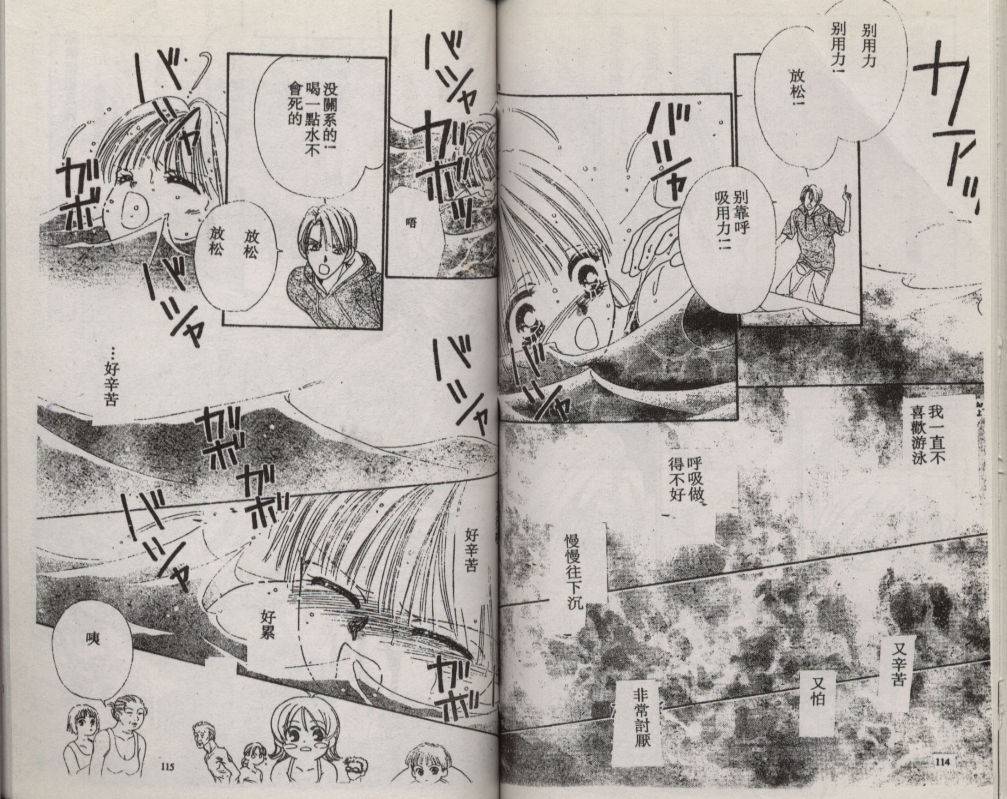 カァッ
别用力
别用力!
放松!
バシャ
别靠呼
吸用力!!
バシャ
我一直不
喜歡游泳
呼吸做
得不好
慢慢往下沉
又辛苦
又怕
非常討厭
114
バシャ
ガボボッ
唔
没關系的!
喝一點水不
會死的
放松
放松
バシャ
ガボ
バシャ
…好辛苦
バシャ
ガボボ
ガボ
バシャ
好辛苦
好累
ガボ
咦
115